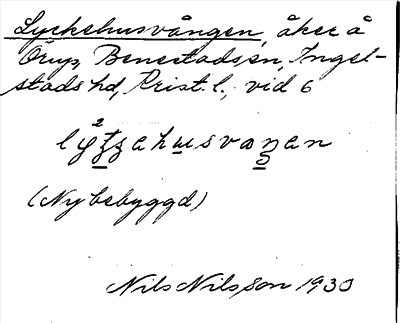 Lyckehusvången, åker å
Örup, Benestads sn, Ingel-
stads hd, Krist. l., vid 6
(Nybebyggd)
Nils Nilsson 1930